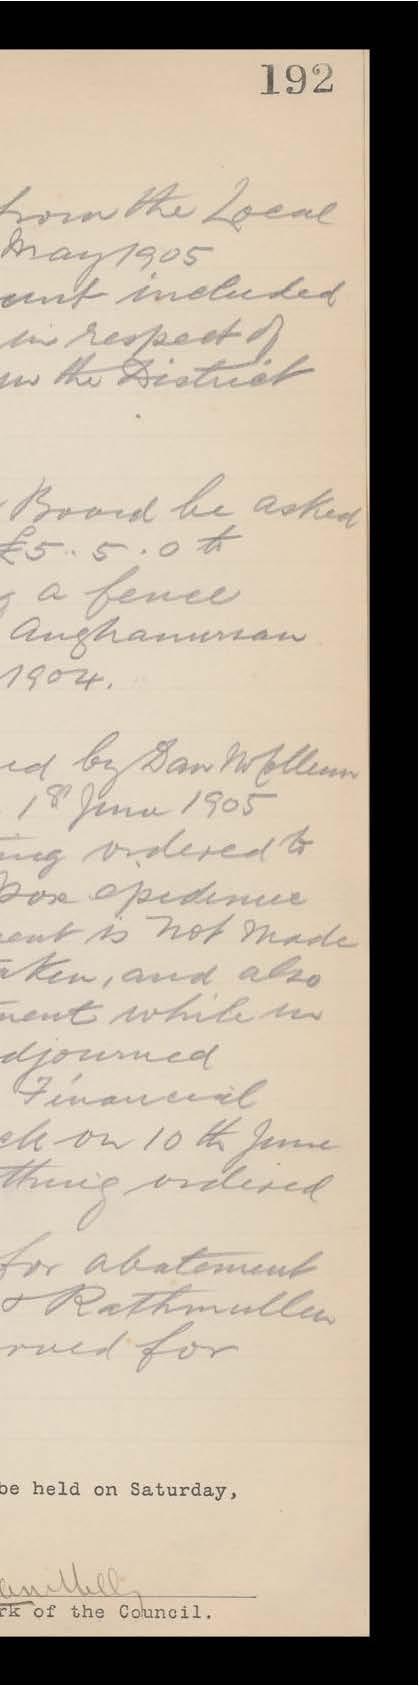 192
from the Local
May 1905
unt included
in respect of
in the District
Board be asked
£5..5.0 to
g a fence
1904.
ed by Dan
1st June 1905
ing ordered to
Pox epidemic
ent is not made
aken, and also
ment while in
djourned
Financial
ck on 10th June
thing ordered
for abatement
& Rathmullen
rved for
be held on Saturday,
rk of the Council.